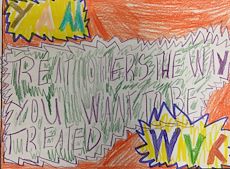 YAM
TREAT OTHERS THE WAY
YOU WANT TO BE
TREATED
WVK